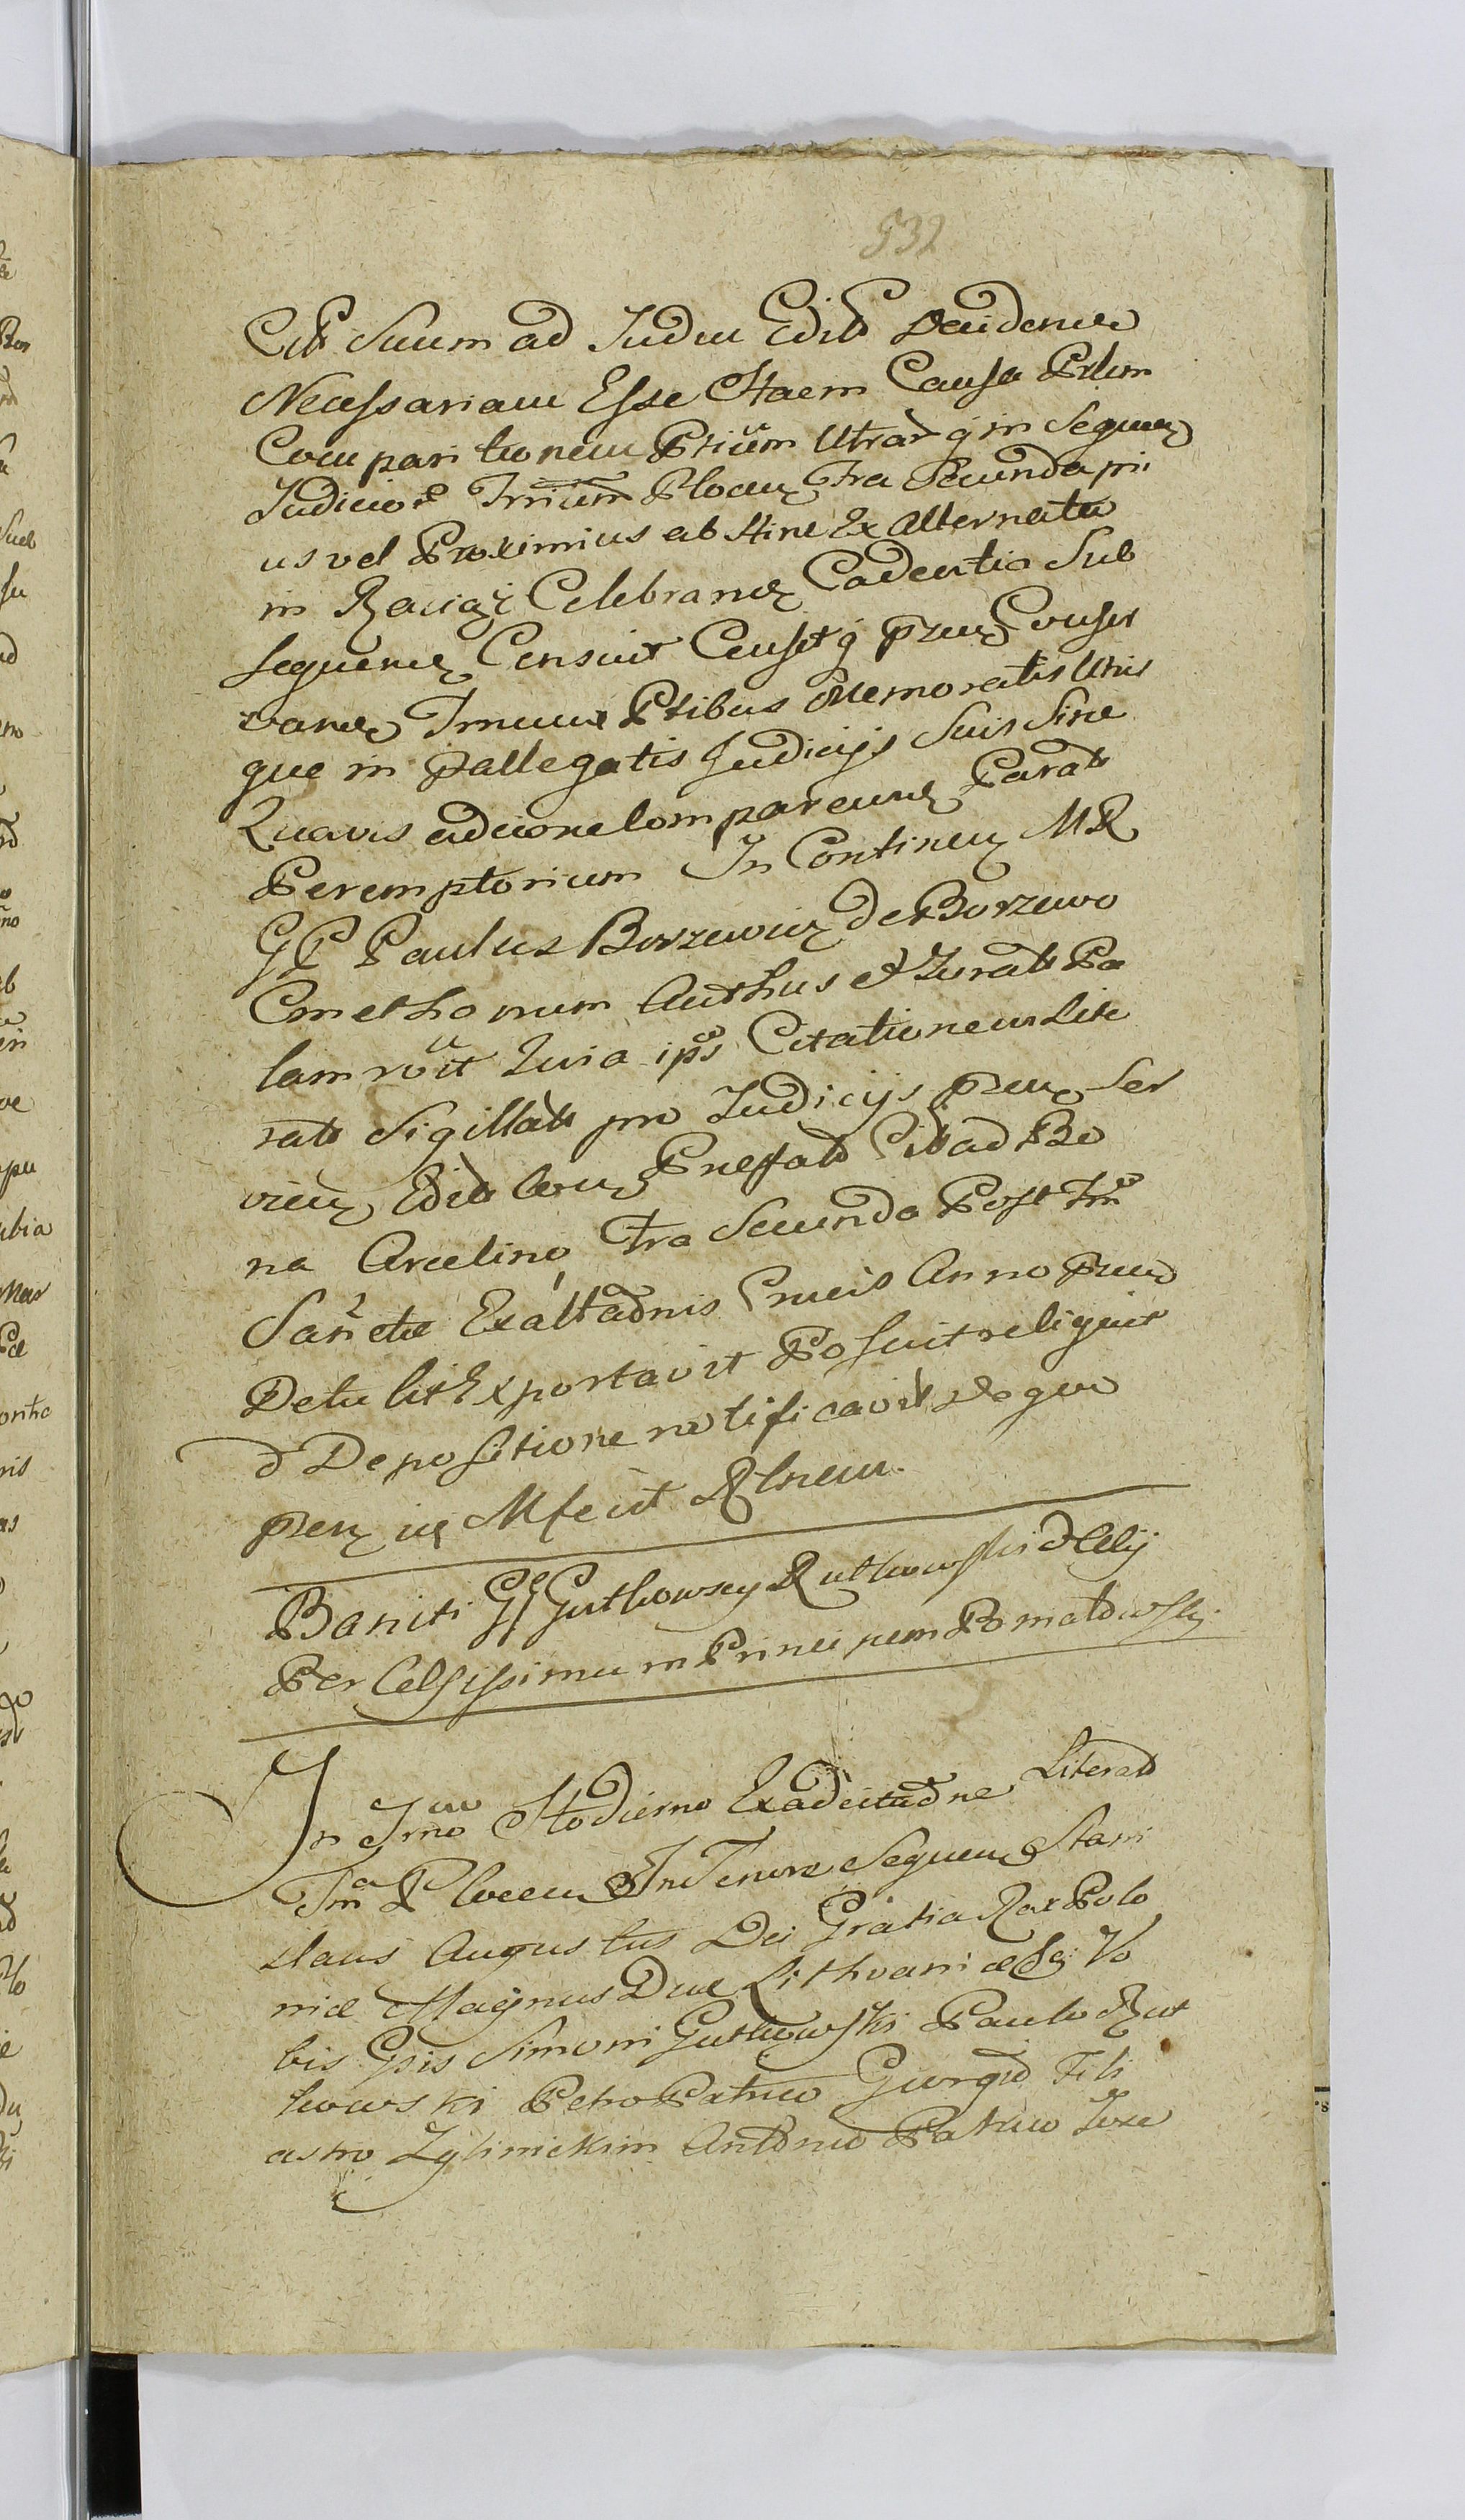 532
Citt Suum ad Judm Edits Decidenda
Necessariam Esse Haem Causa Prlim
Comparitionem Ptium Utraq in Sequen
Judicior Trrium Plocen Fra Secunda pri
us vel Proximius ab Hinc Ex Alternata
in Raciąż Celebranen Cadentia Sub
sequenen Censuit Censetq pren Conser
vanen Trnum Ptibus Memoratis Utris
que in pallegatis Judicijs Suis Sine
Quavis adcione Comparenen Parats
Peremptorium In Continen MR
GP Paulus Borzewicz de Borzewo
Cmethonum Authus et Jurats Pa
lam rvit Quia ips Citationem Lite
rats Sigillats pro Judicijs pren Ser
vien Edits Prefats Citt ad Bo
na Arcelino Fra Secunda Post Fm
Sanctæ Exaltadnis Crucis Anno pren
Detulit Exportavit Posuit reliquit
d Depositione notificavit Deque
pren M fecit Rlnem.
Baniti GG Gutkowscy Rutkowski & Alij
Per Celsissimum Principem Poniatowski.
In Trno Hodierno Exadcitadne Literats
Tra Plocen In Tenore Sequen Stani
slaus Augustus Dei Gratia Rex Polo
niæ Magnus Dux Lithvaniæ Vo
bis Gsis Simoni Gutkowski Paulo Rut
kowski Petro Patruo Giorgio Fili
astro Zglinickim Antonio Patruo Joze